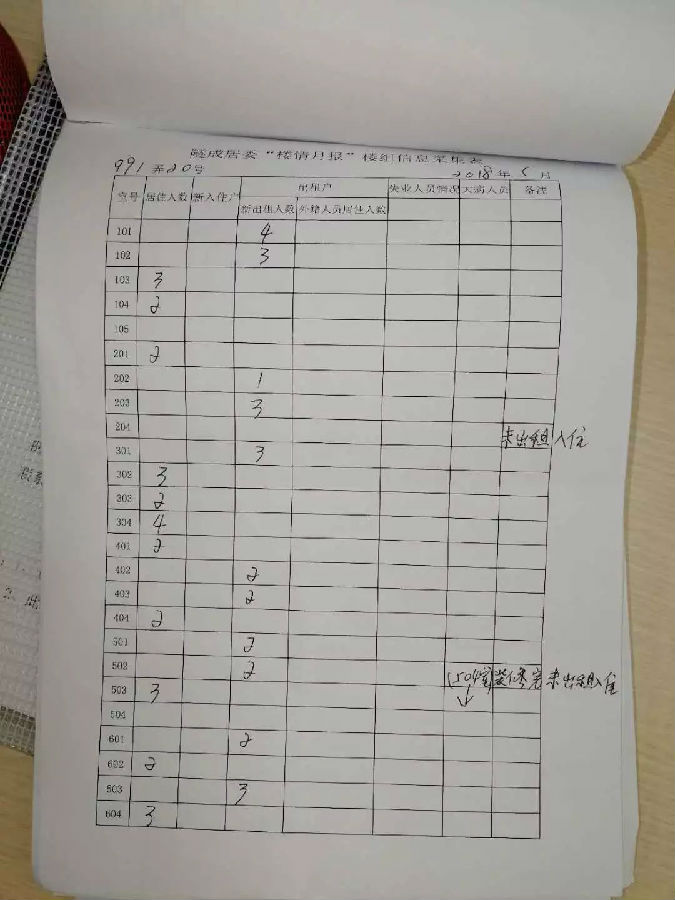 隧成居委“楼情月报”楼组信息采集表
991弄20号 2018年5月
室号 居住人数 新入住户 出租户 失业人员情况 大病人员 备注
新出住人数 外籍人员居住人数
101 4
102 3
103 3
104 2
105
201 2
202 1
203 3
204 未出租入住
301 3
302 3
303 2
304 4
401 2
402 2
403 2
404 2
501 2
502 2
(504室)装修完未出租入住
503 3
504
601 2
602 2
603 3
604 3